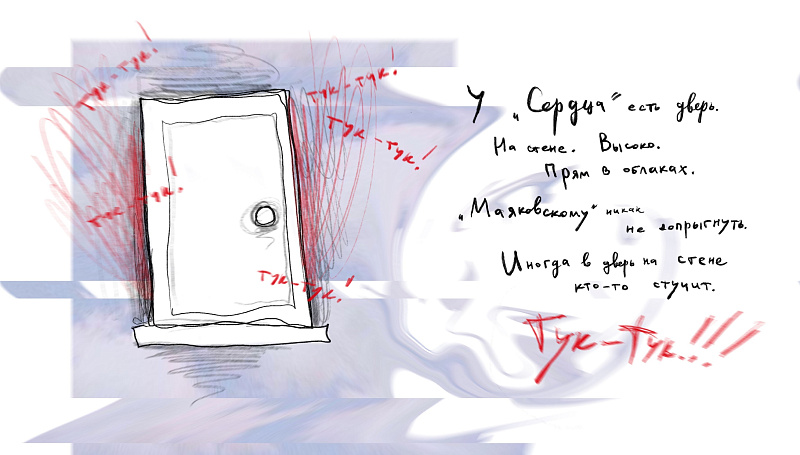 Тук-тук!
Тук-тук!
Тук-тук!
Тук-тук!
Тук-тук!
У „Сердца“ есть дверь.
На стене. Высоко.
Прям в облаках.
„Маяковскому“ никак
не допрыгнуть.
Иногда в дверь на стене
кто-то стучит.
Тук-Тук!!!